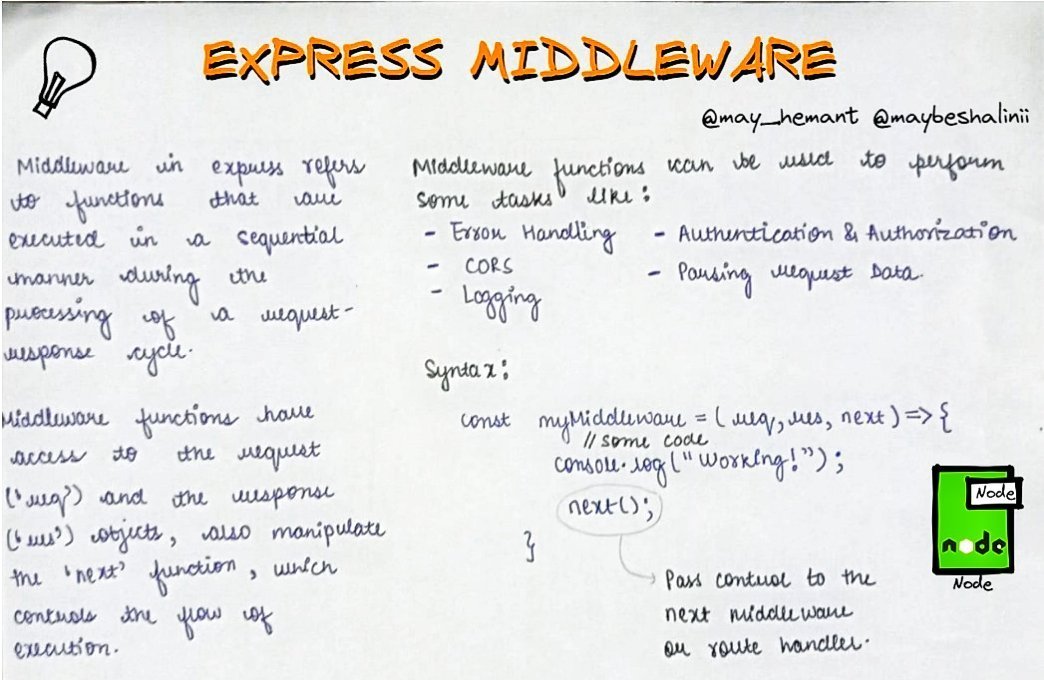 EXPRESS MIDDLEWARE
@may_hemant @maybeshalinii
Middleware in express refers
to functions that are
executed in a sequential
manner during the
processing of a request-
response cycle.
Middleware functions have
access to the request
('req') and the response
('res') objects, also manipulate
the 'next' function, which
controls the flow of
execution.
Middleware functions can be used to perform
some tasks like:
- Error Handling
- CORS
- Logging
- Authentication & Authorization
- Parsing request Data.
Syntax:
const myMiddleware = (req, res, next) => {
// some code
console.log("Working!");
next();
}
Pass control to the
next middleware
or route handler.
Node
node
Node